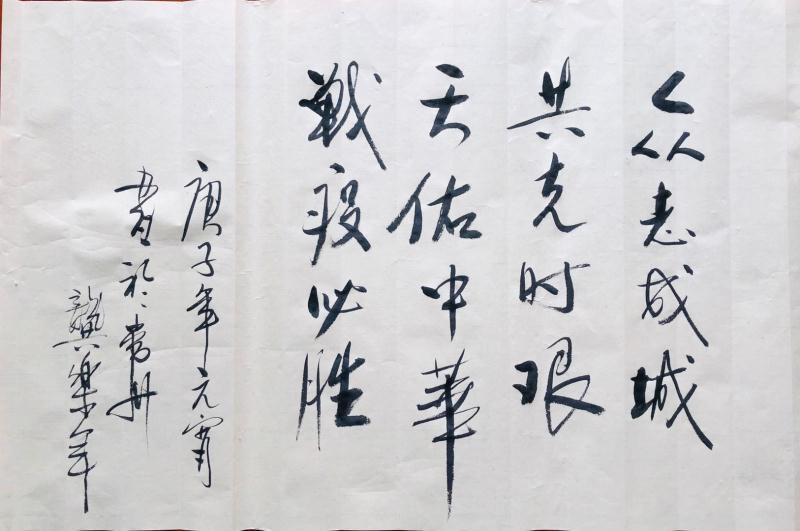 众志成城
共克时艰
天佑中華
戰疫必胜
庚子年元宵
書於常州
龔樂年